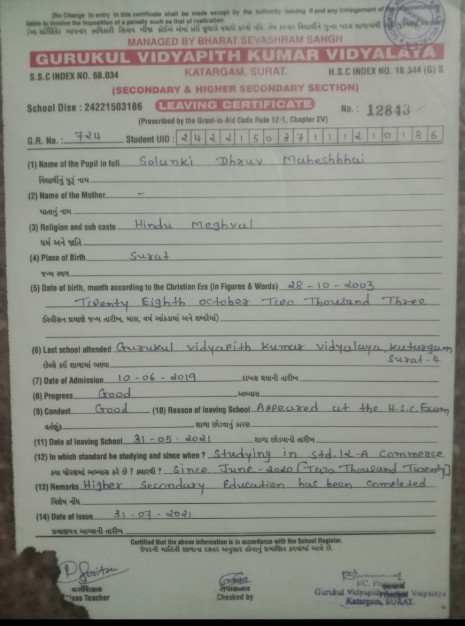 [No Change in entry in this certificate shall be made except by the authority issuing it and any infringement of
liable to involve the imposition of a penalty such as that of rustication.
MANAGED BY BHARAT SEVASHRAM SANGH
GURUKUL VIDYAPITH KUMAR VIDYALAYA
S.S.C INDEX NO. 68.034 KATARGAM, SURAT. H.S.C INDEX NO. 18.344 (G) S
(SECONDARY & HIGHER SECONDARY SECTION)
School Dise : 24221503186 LEAVING CERTIFICATE No. : 12843
(Prescribed by the Grant-in-Aid Code Rule 12-1, Chapter IV)
G.R. No. : 724 Student UID : 242215037111210186
(1) Name of the Pupil in full Solunki Dhruv Maheshbhai
વિદ્યાર્થીનું પુરું નામ
(2) Name of the Mother -
માતાનું નામ
(3) Religion and sub caste Hindu Meghval
ધર્મ અને જ્ઞાતિ
(4) Place of Birth Surat
જન્મ સ્થળ
(5) Date of birth, month according to the Christian Era (in Figures & Words) 28-10-2003
Twenty Eighth october Two Thousand Three
ઈસ્વીસન પ્રમાણે જન્મ તારીખ, માસ, વર્ષ આંકડામાં અને શબ્દોમાં)
(6) Last school attended Gurukul vidyapith Kumar vidyalaya, Katargam
Surat-4
છેલ્લે કઈ શાળામાં ભણ્યા
(7) Date of Admission 10-06-2019 દાખલ થયાની તારીખ
(8) Progress Good અભ્યાસ
(9) Conduct Good (10) Reason of leaving School Appeared at the H.S.C. Exam
વર્તણૂંક શાળા છોડવાનું કારણ
(11) Date of leaving School 31-05-2021 શાળા છોડવાની તારીખ
(12) In which standard he studying and since when ? Studying in std. 12-A Commerce
કયા ધોરણમાં અભ્યાસ કરે છે ? ક્યારથી ? Since June-2020 [Two Thousand Twenty]
(13) Remarks Higher Secondary Education has been completed.
વિશેષ નોંધ
(14) Date of issue 31-07-2021
પ્રમાણપત્ર આપ્યાની તારીખ
Certified that the above information is in accordance with the School Register.
ઉપરની માહિતી શાળાના દફતર અનુસાર હોવાનું પ્રમાણિત કરવામાં આવે છે.
વર્ગશિક્ષક
Class Teacher Checked by
Gurukul Vidyapith Kumar Vidyalaya
Katargam, SURAT.